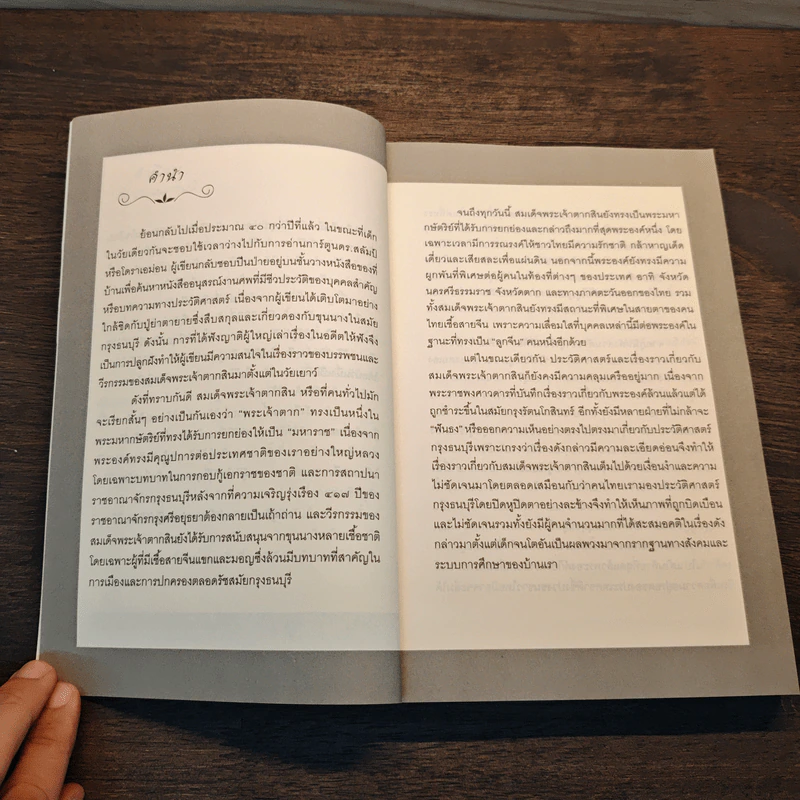 คำนำ
ย้อนกลับไปเมื่อประมาณ ๔๐ กว่าปีที่แล้ว ในขณะที่เด็ก
ในวัยเดียวกันจะชอบใช้เวลาว่างไปกับการอ่านการ์ตูนดร.สลัมป์
หรือโดราเอม่อน ผู้เขียนกลับชอบปีนป่ายอยู่บนชั้นวางหนังสือของที่
บ้านเพื่อค้นหาหนังสืออนุสรณ์งานศพที่มีชีวประวัติของบุคคลสำคัญ
หรือบทความทางประวัติศาสตร์ เนื่องจากผู้เขียนได้เติบโตมาอย่าง
ใกล้ชิดกับปู่ย่าตายายซึ่งสืบสกุลและเกี่ยวดองกับขุนนางในสมัย
กรุงธนบุรี ดังนั้น การที่ได้ฟังญาติผู้ใหญ่เล่าเรื่องในอดีตให้ฟังจึง
เป็นการปลูกฝังทำให้ผู้เขียนมีความสนใจในเรื่องราวของบรรพชนและ
วีรกรรมของสมเด็จพระเจ้าตากสินมาตั้งแต่ในวัยเยาว์
ดังที่ทราบกันดี สมเด็จพระเจ้าตากสิน หรือที่คนทั่วไปมัก
จะเรียกสั้นๆ อย่างเป็นกันเองว่า “พระเจ้าตาก” ทรงเป็นหนึ่งใน
พระมหากษัตริย์ที่ทรงได้รับการยกย่องให้เป็น “มหาราช” เนื่องจาก
พระองค์ทรงมีคุณูปการต่อประเทศชาติของเราอย่างใหญ่หลวง
โดยเฉพาะบทบาทในการกอบกู้เอกราชของชาติ และการสถาปนา
ราชอาณาจักรกรุงธนบุรีหลังจากที่ความเจริญรุ่งเรือง ๔๑๗ ปีของ
ราชอาณาจักรกรุงศรีอยุธยาต้องกลายเป็นเถ้าถ่าน และวีรกรรมของ
สมเด็จพระเจ้าตากสินยังได้รับการสนับสนุนจากขุนนางหลายเชื้อชาติ
โดยเฉพาะผู้ที่มีเชื้อสายจีนแขกและมอญซึ่งล้วนมีบทบาทที่สำคัญใน
การเมืองและการปกครองตลอดรัชสมัยกรุงธนบุรี
จนถึงทุกวันนี้ สมเด็จพระเจ้าตากสินยังทรงเป็นพระมหา
กษัตริย์ที่ได้รับการยกย่องและกล่าวถึงมากที่สุดพระองค์หนึ่ง โดย
เฉพาะเวลามีการรณรงค์ให้ชาวไทยมีความรักชาติ กล้าหาญเด็ด
เดี่ยวและเสียสละเพื่อแผ่นดิน นอกจากนี้พระองค์ยังทรงมีความ
ผูกพันที่พิเศษต่อผู้คนในท้องที่ต่างๆ ของประเทศ อาทิ จังหวัด
นครศรีธรรมราช จังหวัดตาก และทางภาคตะวันออกของไทย รวม
ทั้งสมเด็จพระเจ้าตากสินยังทรงมีสถานะที่พิเศษในสายตาของคน
ไทยเชื้อสายจีน เพราะความเลื่อมใสที่บุคคลเหล่านี้มีต่อพระองค์ใน
ฐานะที่ทรงเป็น “ลูกจีน” คนหนึ่งอีกด้วย
แต่ในขณะเดียวกัน ประวัติศาสตร์และเรื่องราวเกี่ยวกับ
สมเด็จพระเจ้าตากสินก็ยังคงมีความคลุมเครืออยู่มาก เนื่องจาก
พระราชพงศาวดารที่บันทึกเรื่องราวเกี่ยวกับพระองค์ล้วนแล้วแต่ได้
ถูกชำระขึ้นในสมัยกรุงรัตนโกสินทร์ อีกทั้งยังมีหลายฝ่ายที่ไม่กล้าจะ
“ฟันธง” หรือออกความเห็นอย่างตรงไปตรงมาเกี่ยวกับประวัติศาสตร์
กรุงธนบุรีเพราะเกรงว่าเรื่องดังกล่าวมีความละเอียดอ่อนจึงทำให้
เรื่องราวเกี่ยวกับสมเด็จพระเจ้าตากสินเต็มไปด้วยเงื่อนงำและความ
ไม่ชัดเจนมาโดยตลอดเสมือนกับว่าคนไทยเรามองประวัติศาสตร์
กรุงธนบุรีโดยปิดหูปิดตาอย่างละข้างจึงทำให้เห็นภาพที่ถูกบิดเบือน
และไม่ชัดเจนรวมทั้งยังมีผู้คนจำนวนมากที่ได้สะสมอคติในเรื่องดัง
กล่าวมาตั้งแต่เด็กจนโตอันเป็นผลพวงมาจากรากฐานทางสังคมและ
ระบบการศึกษาของบ้านเรา